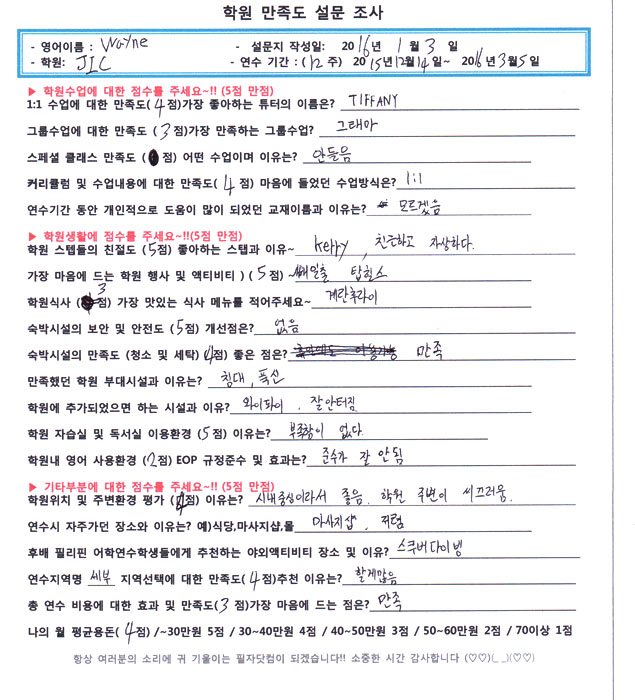 학원 만족도 설문 조사
- 영어이름 : Wayne - 설문지 작성일: 2016년 1월 3일
- 학원: JIC - 연수 기간 : (12주) 2015년12월14일~ 2016년3월5일
▶ 학원수업에 대한 점수를 주세요~!! (5점 만점)
1:1 수업에 대한 만족도(4점)가장 좋아하는 튜터의 이름은? TIFFANY
그룹수업에 대한 만족도 (3점)가장 만족하는 그룹수업? 그래마
스페셜 클래스 만족도 ( 점) 어떤 수업이며 이유는? 안들음
커리큘럼 및 수업내용에 대한 만족도(4점) 마음에 들었던 수업방식은? 1:1
연수기간 동안 개인적으로 도움이 많이 되었던 교재이름과 이유는? 모르겠음
▶ 학원생활에 점수를 주세요~!!(5점 만점)
학원 스텝들의 친절도 (5점) 좋아하는 스탭과 이유~ kerry, 친근하고 자상하다.
가장 마음에 드는 학원 행사 및 액티비티 ) (5점) ~ 탑힐스
학원식사 (3점) 가장 맛있는 식사 메뉴를 적어주세요~ 계란후라이
숙박시설의 보안 및 안전도 (5점) 개선점은? 없음
숙박시설의 만족도 (청소 및 세탁) (4점) 좋은 점은? 만족
만족했던 학원 부대시설과 이유는? 침대, 푹신
학원에 추가되었으면 하는 시설과 이유? 와이파이. 잘안터짐
학원 자습실 및 독서실 이용환경 (5점) 이유는? 부족함이 없다.
학원내 영어 사용환경 (2점) EOP 규정준수 및 효과는? 준수가 잘 안됨
▶ 기타부분에 대한 점수를 주세요~!! (5점 만점)
학원위치 및 주변환경 평가 (4점) 이유는? 시내중심이라서 좋음. 학원 주변이 시끄러움.
연수시 자주가던 장소와 이유는? 예)식당,마사지샵,몰 마사지샵, 저렴
후배 필리핀 어학연수학생들에게 추천하는 야외액티비티 장소 및 이유? 스쿠버다이빙
연수지역명 세부 지역선택에 대한 만족도(4점)추천 이유는? 할게많음
총 연수 비용에 대한 효과 및 만족도(3점)가장 마음에 드는 점은? 만족
나의 월 평균용돈(4점) /~30만원 5점 / 30~40만원 4점 / 40~50만원 3점 / 50~60만원 2점 / 70이상 1점
항상 여러분의 소리에 귀 기울이는 필자닷컴이 되겠습니다!! 소중한 시간 감사합니다 (♡♡)(_ _)(♡♡)